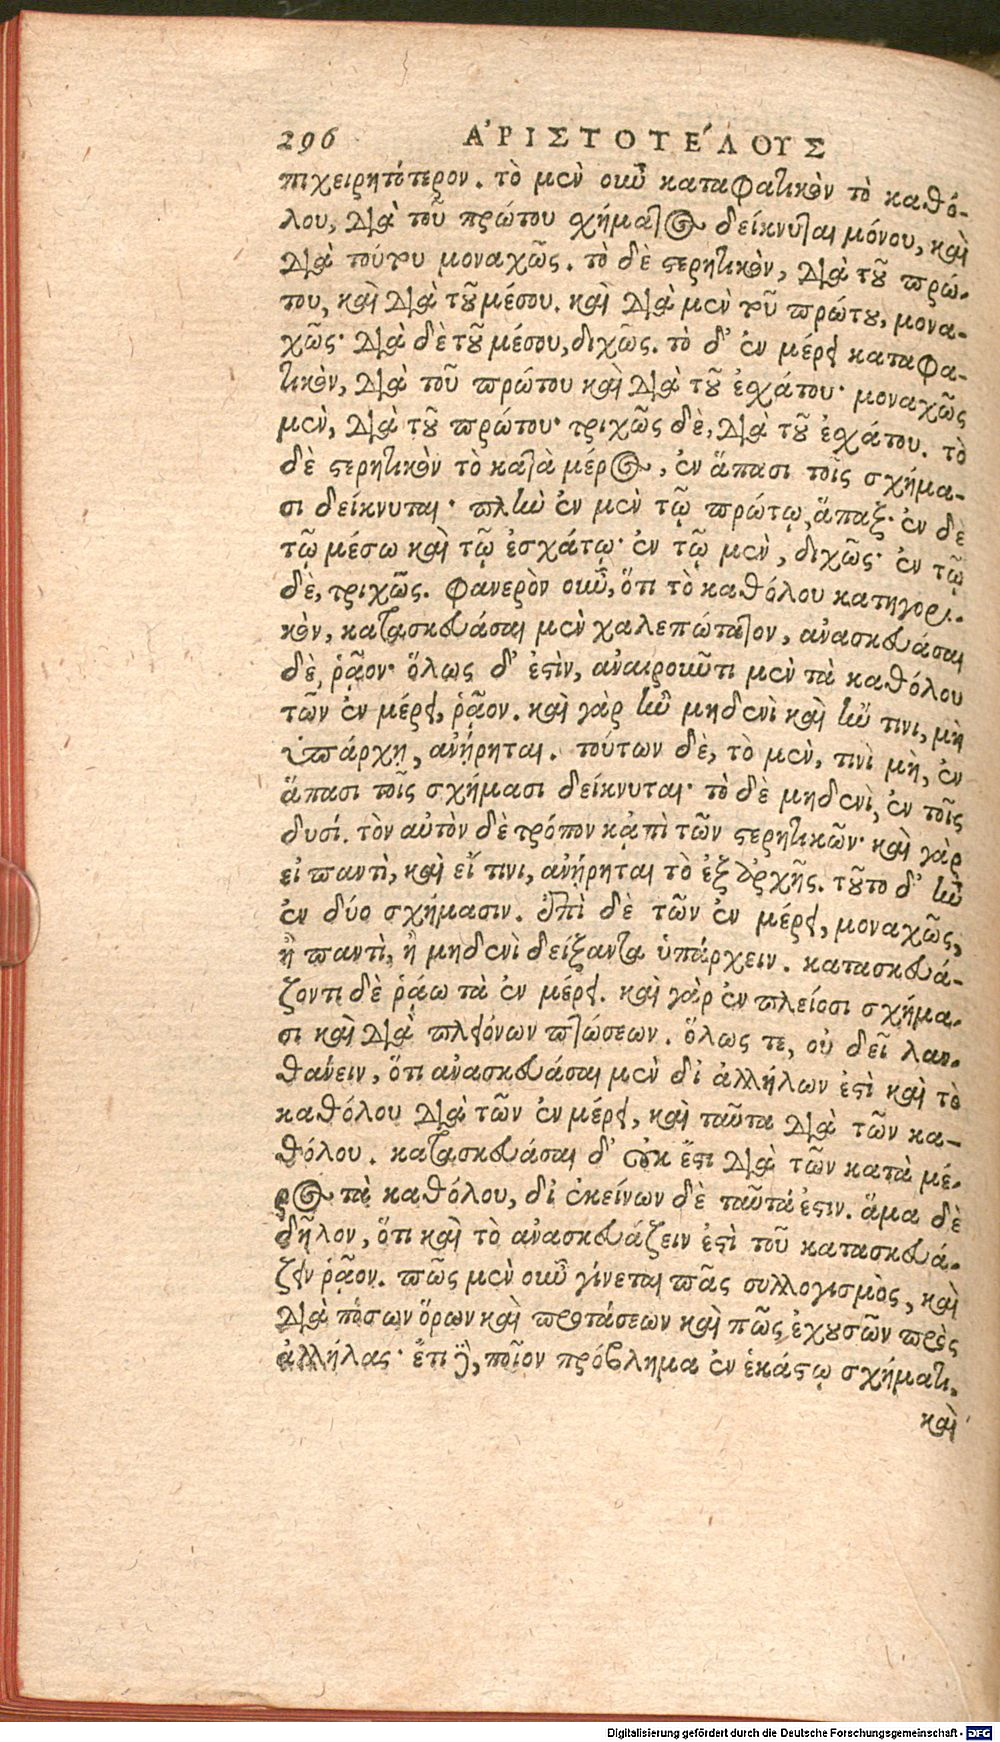 296 ἈΡΙΣΤΟΤΈΛΟΥΣ
πιχειρητότερον. τὸ μὲν οὖν καταφατικὸν τὸ καθό-
λου, διὰ τοῦ πρώτου σχήματος δείκνυται μόνου, καὶ
διὰ τούτου μοναχῶς. τὸ δὲ στερητικὸν, διὰ τοῦ πρώ-
του, καὶ διὰ τοῦ μέσου. καὶ διὰ μὲν τοῦ πρώτου, μονα-
χῶς· διὰ δὲ τοῦ μέσου, διχῶς. τὸ δ' ἐν μέρει καταφα-
τικὸν, διὰ τοῦ πρώτου καὶ διὰ τοῦ ἐσχάτου· μοναχῶς
μὲν, διὰ τοῦ πρώτου· τριχῶς δὲ, διὰ τοῦ ἐσχάτου. τὸ
δὲ στερητικὸν τὸ κατὰ μέρος, ἐν ἅπασι τοῖς σχήμα-
σι δείκνυται· πλὴν ἐν μὲν τῷ πρώτῳ, ἅπαξ· ἐν δὲ
τῷ μέσω καὶ τῷ ἐσχάτῳ· ἐν τῷ μὲν, διχῶς· ἐν τῷ
δὲ, τριχῶς. φανερὸν οὖν, ὅτι τὸ καθόλου κατηγορι-
κὸν, κατασκευάσαι μὲν χαλεπώτατον, ἀνασκευάσαι
δὲ, ῥᾷον· ὅλως δ' ἐστὶν, ἀναιροῦντι μὲν τὰ καθόλου
τῶν ἐν μέρει, ῥᾷον. καὶ γὰρ ἢν μηδενὶ καὶ ἤν τινι, μὴ
ὑπάρχῃ, ἀνῄρηται. τούτων δὲ, τὸ μὲν, τινὶ μὴ, ἐν
ἅπασι τοῖς σχήμασι δείκνυται· τὸ δὲ μηδενὶ, ἐν τοῖς
δυσί. τὸν αὐτὸν δὲ τρόπον κᾀπὶ τῶν στερητικῶν· καὶ γὰρ
εἰ παντὶ, καὶ εἴ τινι, ἀνῄρηται τὸ ἐξ ἀρχῆς. τοῦτο δ' ἦν
ἐν δύο σχήμασιν. ἐπὶ δὲ τῶν ἐν μέρει, μοναχῶς,
ἢ παντὶ, ἢ μηδενὶ δείξαντα ὑπάρχειν. κατασκευά-
ζοντι δὲ ῥάω τὰ ἐν μέρει. καὶ γὰρ ἐν πλείοσι σχήμα-
σι καὶ διὰ πλειόνων πτώσεων. ὅλως τε, οὐ δεῖ λαν-
θάνειν, ὅτι ἀνασκευάσαι μὲν δι' ἀλλήλων ἐστὶ καὶ τὸ
καθόλου διὰ τῶν ἐν μέρει, καὶ ταῦτα διὰ τῶν κα-
θόλου. κατασκευάσαι δ' οὐκ ἔστι διὰ τῶν κατὰ μέ-
ρος τὰ καθόλου, δι' ἐκείνων δὲ ταῦτά ἐστιν. ἅμα δὲ
δῆλον, ὅτι καὶ τὸ ἀνασκευάζειν ἐστὶ τοῦ κατασκευά-
ζειν ῥᾷον. πῶς μὲν οὖν γίνεται πᾶς συλλογισμὸς, καὶ
διὰ πόσων ὅρων καὶ προτάσεων καὶ πῶς ἐχουσῶν πρὸς
ἀλλήλας· ἔτι δὲ, ποῖον πρόβλημα ἐν ἑκάστῳ σχήματι,
καὶ
Digitalisierung gefördert durch die Deutsche Forschungsgemeinschaft - DFG